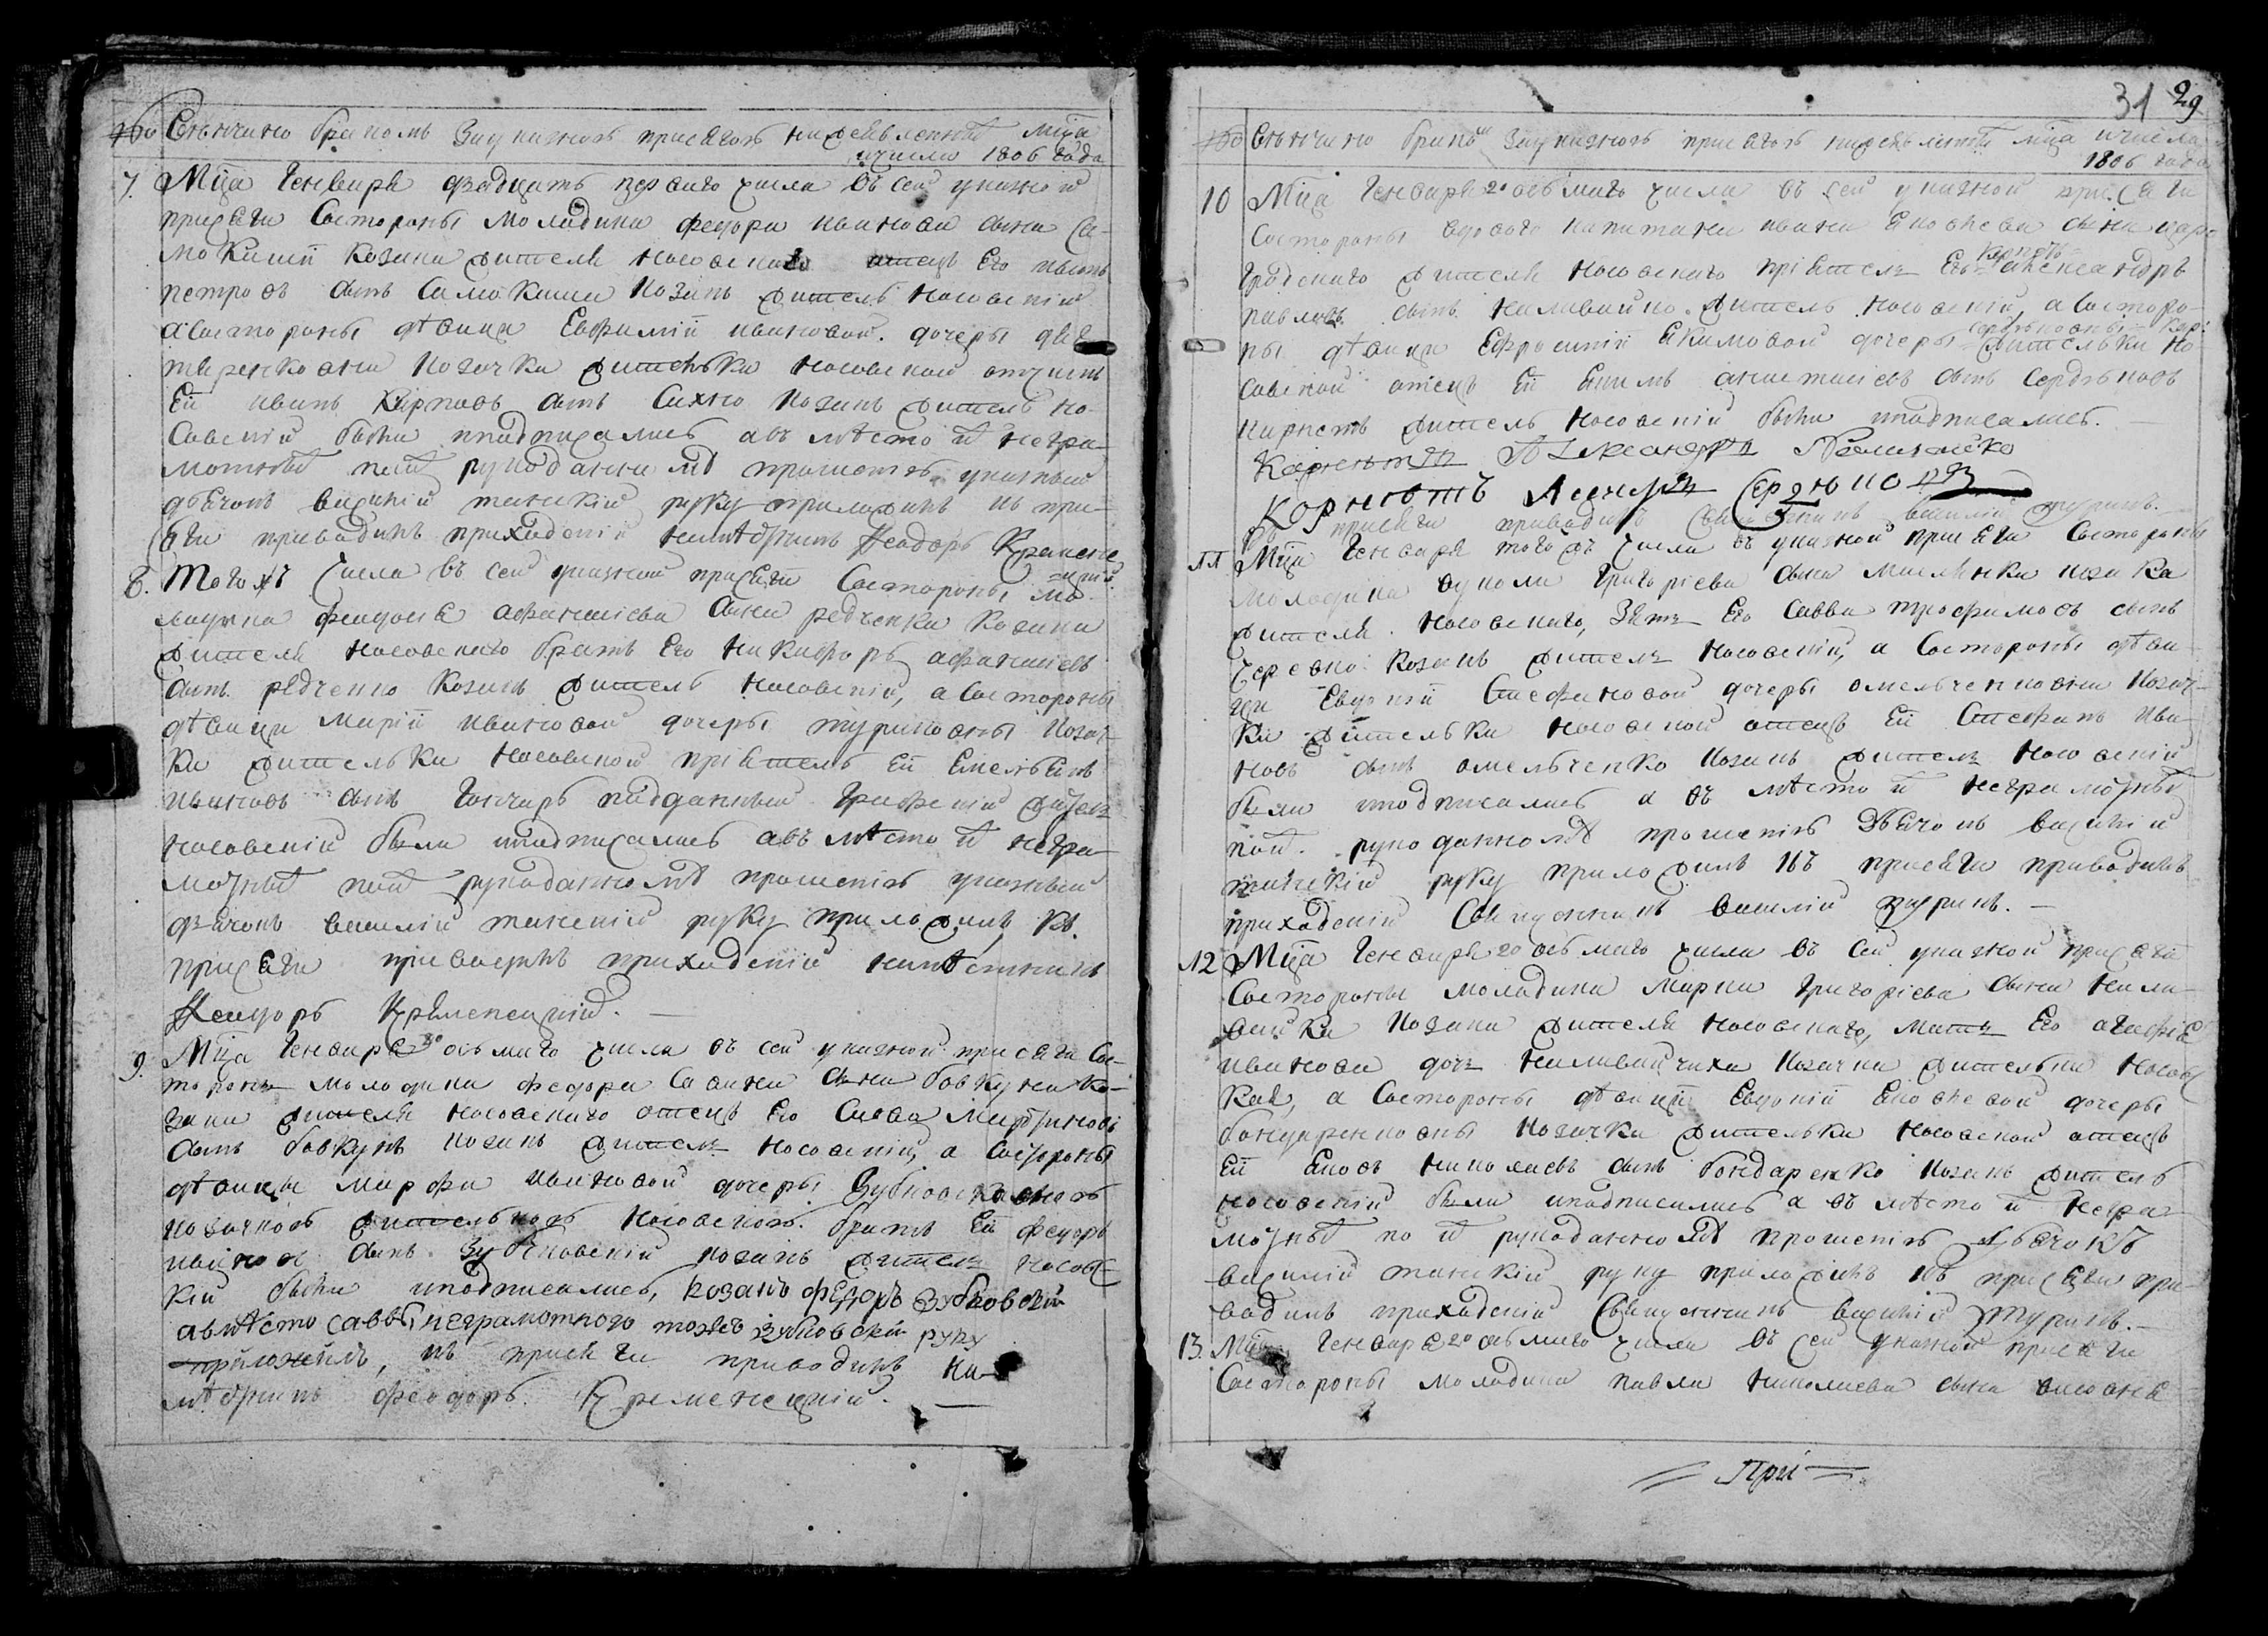 Венчано бракомъ За указною присягою нижеявленныхъ мца
ичисла 1806 года
7. Мца Генваря двадцать перваго числа въ сей указной
присяги Состороны молодика федора иванова сына Са-
мокиши козака жителя носовскаго отецъ Его иванъ
петровъ сынъ Самокиша козакъ житель носовскій
а Состороны девици Евфиміи ивановой дочеры
козачки жителки носовской отчимъ
Ей иванъ Карповъ сынъ Сахно козакъ житель но-
совскій были иподписались а въ место ихъ негра-
мотныхъ по ихъ рукоданному прошенію указный
дячокъ василій танскій руку приложилъ къ при-
сяги приводилъ приходскій наместникъ Феодоръ Кремене
цкій
8. Того жъ числа въ сей указной присяги Состороны мо-
лодика феодосія афанасіева сына редченка козака
жителя носовскаго братъ Его Никифоръ афанасіевъ
сынъ редченко козакъ житель носовскій, а Состороны
девици Маріи ивановой дочеры козач-
ки жителки носовской пріятель Ей Емельянъ
ивановъ сынъ Гончаръ подданный графскій житель
носовскій были иподписались а въ место ихъ негра-
мотныхъ по ихъ рукоданному прошенію указный
дячокъ василій танскій руку приложилъ къ
присяги приводилъ приходскій наместникъ
Феодоръ Кременецкій.
9. Мца Генваря 20 осьмаго числа въ сей указной присяги Со-
стороны молодика федора Савина сына бовкуна ко-
зака жителя носовскаго отецъ Его Савва Мартиновъ
сынъ бовкунъ козакъ житель носовскій, а Состороны
девици Марфи ивановой дочеры Зубковсковною
козачкою жителькою носовскою братъ Ей федоръ
ивановъ сынъ Зубковскій козакъ житель носовс
кій были иподписались, козакъ федоръ Зубковский
авместо саввы неграмотного тожъ зубковский руку
приложилъ, къ присяги приводилъ На-
местникъ феодоръ Кременецкій.
31 29
Венчано бракомъ За указною присягою нижеявленныхъ мца ичисла
1806 года
10 Мца Генваря 20 осьмаго числа въ сей указной присяги
Состороны вдового капитана ивана Яковлева сына
градскаго жителя носовскаго пріятель Его александръ
корнетъ
павловъ сынъ Наливайко житель носовскій, а Состоро-
ны девици Ефросиніи Якимовой дочеры жителки но-
совской отецъ Ей Якимъ сынъ Сердюковъ
корнетъ житель носовскій были иподписались.
Корнетъ Александръ
Корнетъ Сердюковъ
къ присяги приводилъ Священникъ василій турикъ.
11 Мца Генваря того жъ числа въ указной присяги Состороны
молодика вукола Григоріева сына козака
жителя носовскаго, Зять Его Савва трофимовъ сынъ
козакъ житель носовскій, а Состороны деви-
ци Евдокіи Стефановой дочеры омельченковни козач-
ки жителки носовской отецъ Ей Стефанъ ива-
новъ сынъ омельченко козакъ житель носовскій
были иподписались а въ место ихъ неграмотныхъ
по ихъ рукоданному прошенію дячокъ василій
танскій руку приложилъ къ присяги приводилъ
приходскій Священникъ василій турикъ.
12 Мца Генваря 20 осьмаго числа въ сей указной присяги
Состороны молодика Марка Григоріева сына Нали-
вайка козака жителя носовскаго, мать Его агафія
иванова дочь Наливайчиха козачка жителка носовс
кая, а Состороны девици Евдокіи Яковлевой дочеры
бондаренковны козачки жителки носовской отецъ
Ей Яковъ николаевъ сынъ бондаренко козакъ житель
носовскій были иподписались а въ место ихъ негра-
мотныхъ по ихъ рукоданному прошенію дячокъ
василій танскій руку приложилъ къ присяги при-
водилъ приходскій Священникъ василій турикъ.
13. Мца Генваря 20 осьмаго числа въ сей указной присяги
Состороны молодика павла николаева сына
При